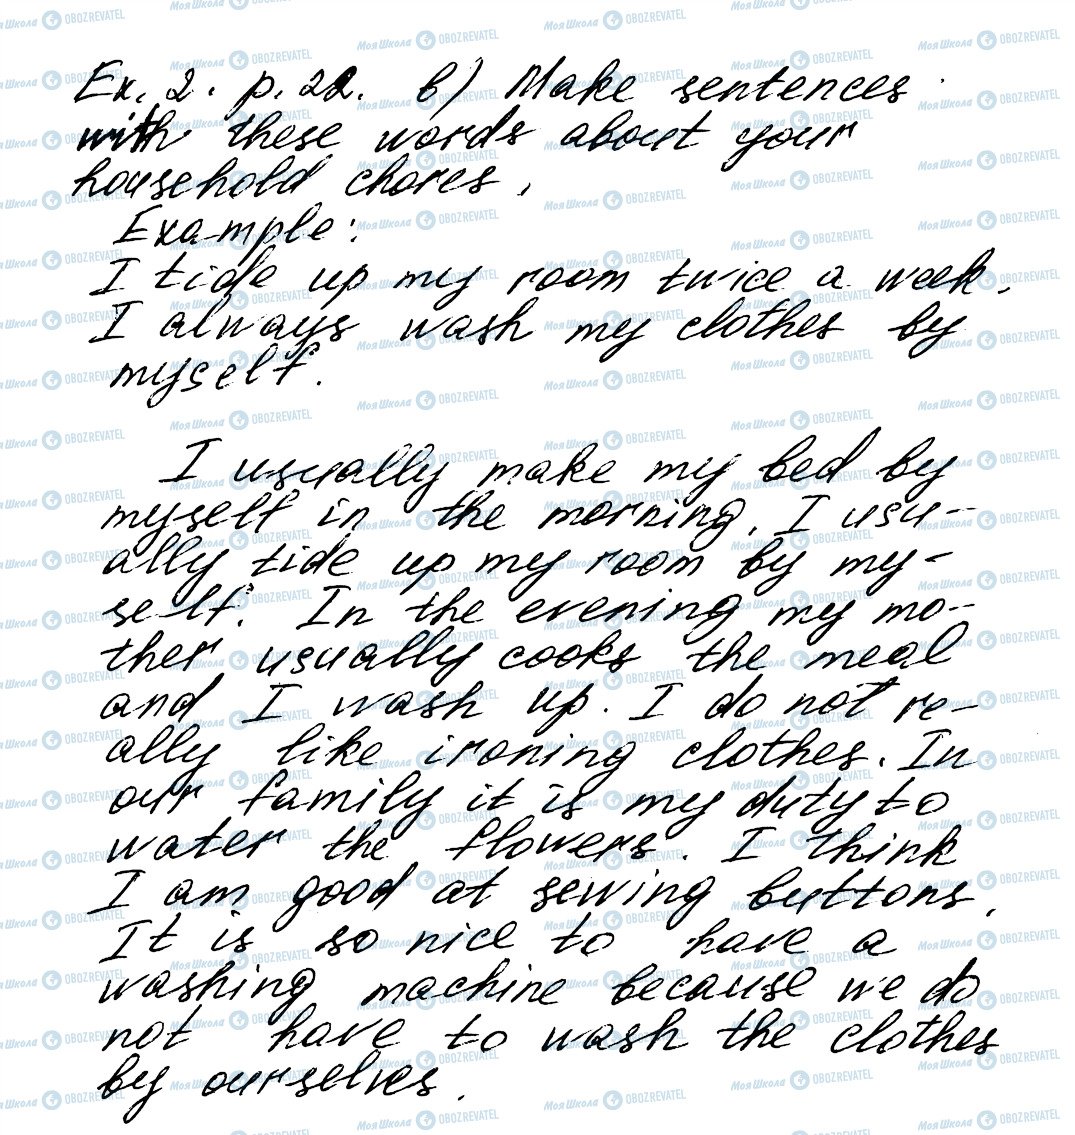 Ex. 2. p. 22. b) Make sentences
with these words about your
household chores.
Example:
I tide up my room twice a week.
I always wash my clothes by
myself.
I usually make my bed by
myself in the morning. I usu-
ally tide up my room by my-
self. In the evening my mo-
ther usually cooks the meal
and I wash up. I do not re-
ally like ironing clothes. In
our family it is my duty to
water the flowers. I think
I am good at sewing buttons.
It is so nice to have a
washing machine because we do
not have to wash the clothes
by ourselves.